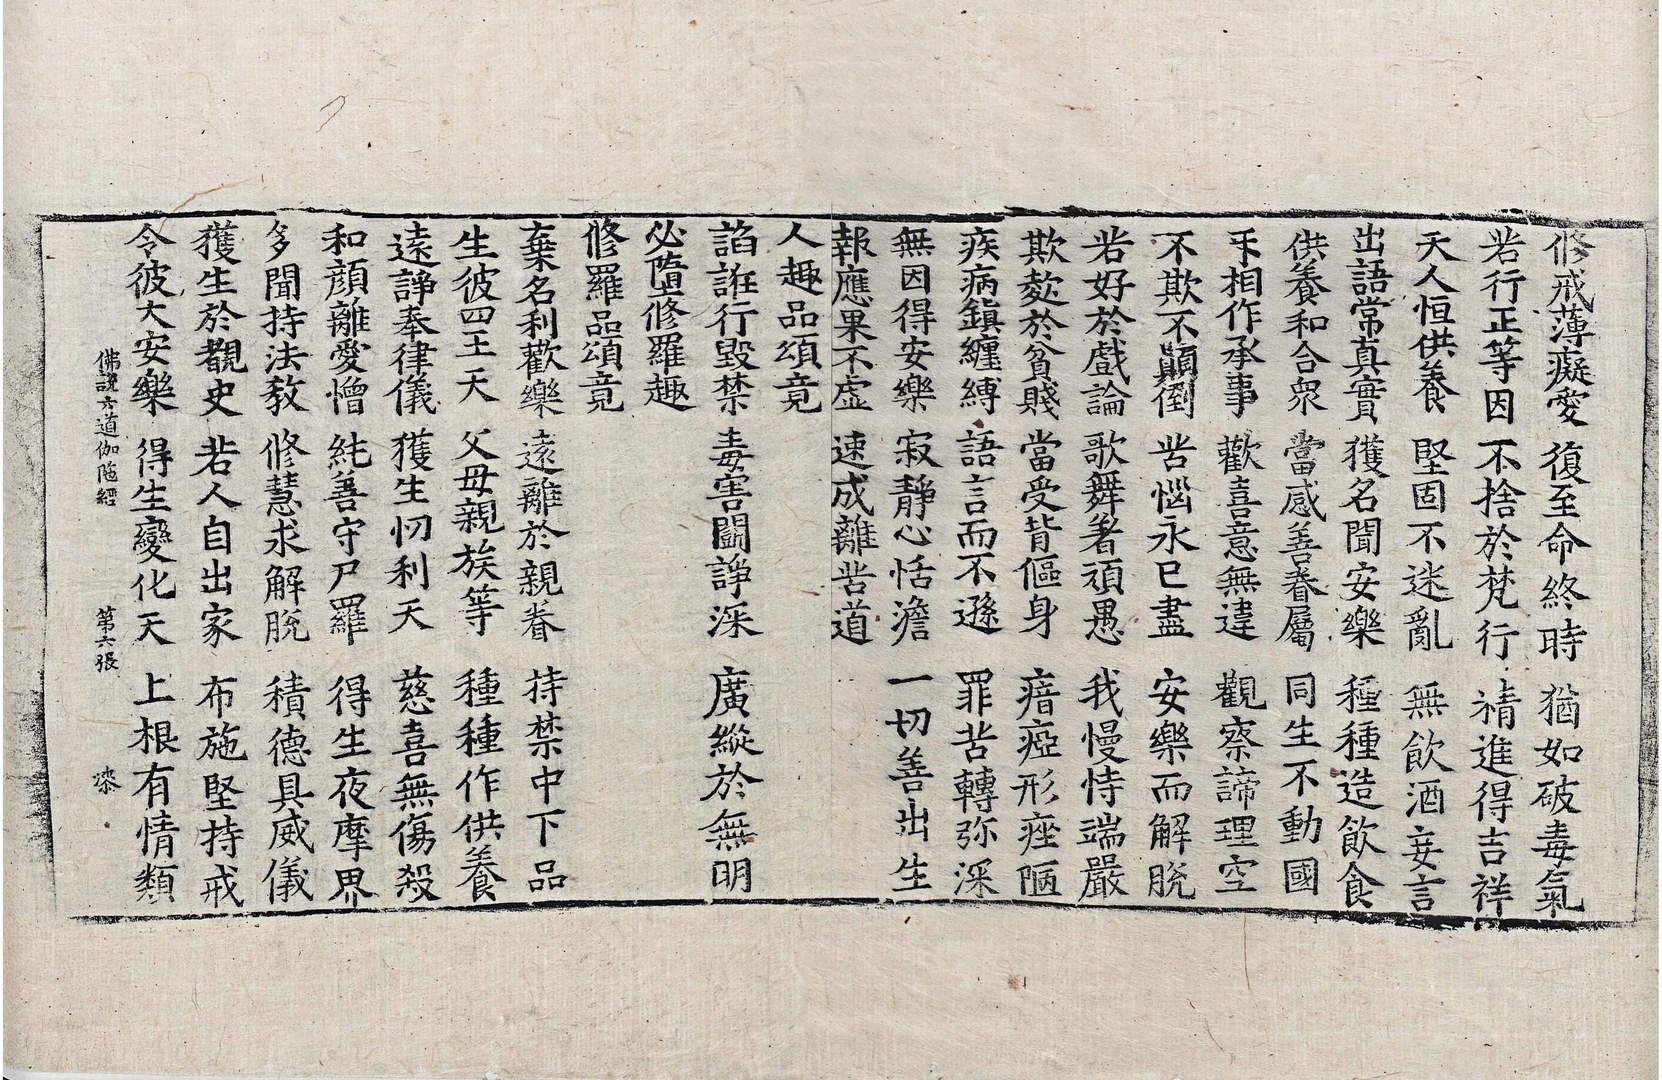 修戒薄癡愛 復至命終時 猶如破毒氣
若行正等因 不捨於梵行 精進得吉祥
天人恒供養 堅固不迷亂 無飲酒妄言
出語常真實 獲名聞安樂 種種造飲食
供養和合眾 當感善眷屬 同生不動國
㸦相作承事 歡喜意無違 觀察諦理空
不欺不顛倒 苦惱永已盡 安樂而解脫
若好於戲論 歌舞著頑愚 我慢恃端嚴
欺㪍於貧賤 當受背傴身 瘖瘂形痤陋
疾病鎮纏縛 語言而不遜 罪苦轉弥深
無因得安樂 寂靜心恬澹 一切善出生
報應果不虛 速成離苦道
人趣品頌竟
諂誑行毀禁 毒害鬪諍深 廣縱於無明
必墮修羅趣
修羅品頌竟
棄名利歡樂 遠離於親眷 持禁中下品
生彼四王天 父母親族等 種種作供養
遠諍奉律儀 獲生忉利天 慈喜無傷殺
和顏離愛憎 純善守尸羅 得生夜摩界
多聞持法教 修慧求解脫 積德具威儀
獲生於覩史 若人自出家 布施堅持戒
令彼大安樂 得生變化天 上根有情類
佛說六道伽陁經 第六張 漆